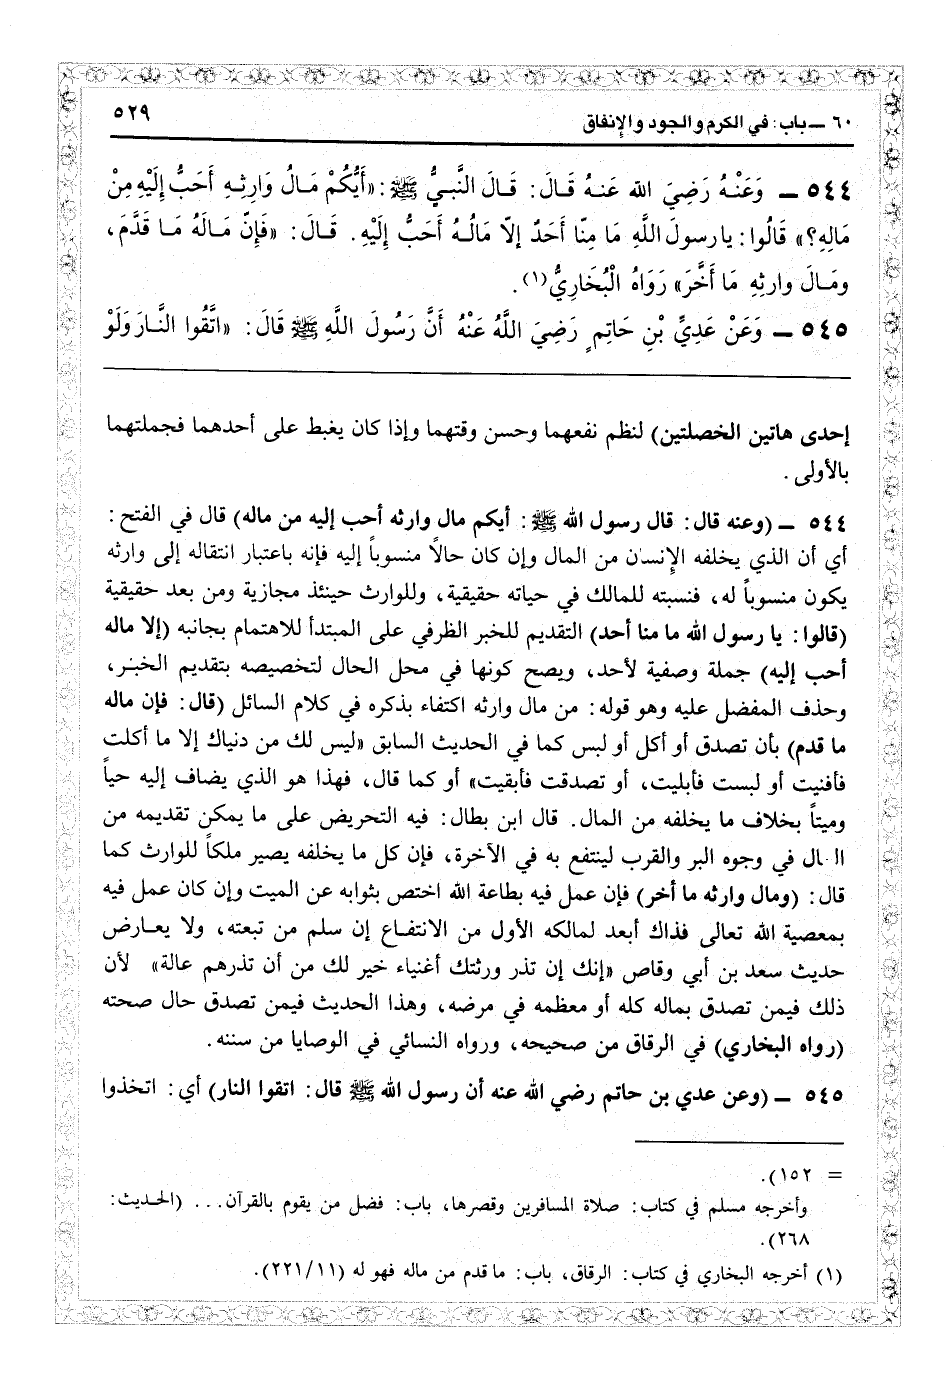 ٦٠ ــ باب: في الكرم والجود والإنفاق
٥٢٩
٥٤٤ ــ وَعَنْـهُ رَضِيَ الله عَنـهُ قَـالَ: قَـالَ النَّبـيُّ ﷺ: «أَيُّكُمْ مَـالُ وَارِثِـهِ أَحَبُّ إِلَيْهِ مِنْ
مَالِهِ؟» قَالُوا: يا رسولَ اللَّهِ مَا مِنَّا أَحَدٌ إلاّ مَالُـهُ أَحَبُّ إلَيْهِ. قَـالَ: «فَإنّ مَالَهُ مَـا قَدَّمَ،
ومَـالَ وارِثِهِ مَا أَخَّرَ» رَوَاهُ الْبُخَارِيُّ(١).
٥٤٥ ــ وَعَنْ عَدِيِّ بْنِ حَاتِمٍ رَضِيَ اللَّهُ عَنْهُ أَنَّ رَسُولَ اللَّهِ ﷺ قَالَ: «اتَّقُوا النَّارَ وَلَوْ
إحدى هاتين الخصلتين) لنظم نفعهما وحسن وقتهما وإذا كان يغبط على أحدهما فجملتهما
بالأولى.
٥٤٤ ــ (وعنه قال: قال رسول الله ﷺ: أيكم مال وارثه أحب إليه من ماله) قال في الفتح:
أي أن الذي يخلفه الإنسان من المال وإن كان حالاً منسوباً إليه فإنه باعتبار انتقاله إلى وارثه
يكون منسوباً له، فنسبته للمالك في حياته حقيقية، وللوارث حينئذ مجازية ومن بعد حقيقية
(قالوا: يا رسول الله ما منا أحد) التقديم للخبر الظرفي على المبتدأ للاهتمام بجانبه (إلا ماله
أحب إليه) جملة وصفية لأحد، ويصح كونها في محل الحال لتخصيصه بتقديم الخبـر،
وحذف المفضل عليه وهو قوله: من مال وارثه اكتفاء بذكره في كلام السائل (قال: فإن ماله
ما قدم) بأن تصدق أو أكل أو لبس كما في الحديث السابق «ليس لك من دنياك إلا ما أكلت
فأفنيت أو لبست فأبليت، أو تصدقت فأبقيت» أو كما قال، فهذا هو الذي يضاف إليه حياً
وميتاً بخلاف ما يخلفه من المال. قال ابن بطال: فيه التحريض على ما يمكن تقديمه من
المال في وجوه البر والقرب لينتفع به في الآخرة، فإن كل ما يخلفه يصير ملكاً للوارث كما
قال: (ومال وارثه ما أخر) فإن عمل فيه بطاعة الله اختص بثوابه عن الميت وإن كان عمل فيه
بمعصية الله تعالى فذاك أبعد لمالكه الأول من الانتفـاع إن سلم من تبعته، ولا يعـارض
حديث سعد بن أبي وقاص «إنك إن تذر ورثتك أغنياء خير لك من أن تذرهم عالة» لأن
ذلك فيمن تصدق بماله كله أو معظمه في مرضه، وهذا الحديث فيمن تصدق حال صحته
(رواه البخاري) في الرقاق من صحيحه، ورواه النسائي في الوصايا من سننه.
٥٤٥ ــ (وعن عدي بن حاتم رضي الله عنه أن رسول الله ﷺ قال: اتقوا النار) أي: اتخذوا
= ١٥٢).
وأخرجه مسلم في كتاب: صلاة المسافرين وقصرها، باب: فضل من يقوم بالقرآن... (الحديث:
٢٦٨).
(١) أخرجه البخاري في كتاب: الرقاق، باب: ما قدم من ماله فهو له (٢٢١/١١).